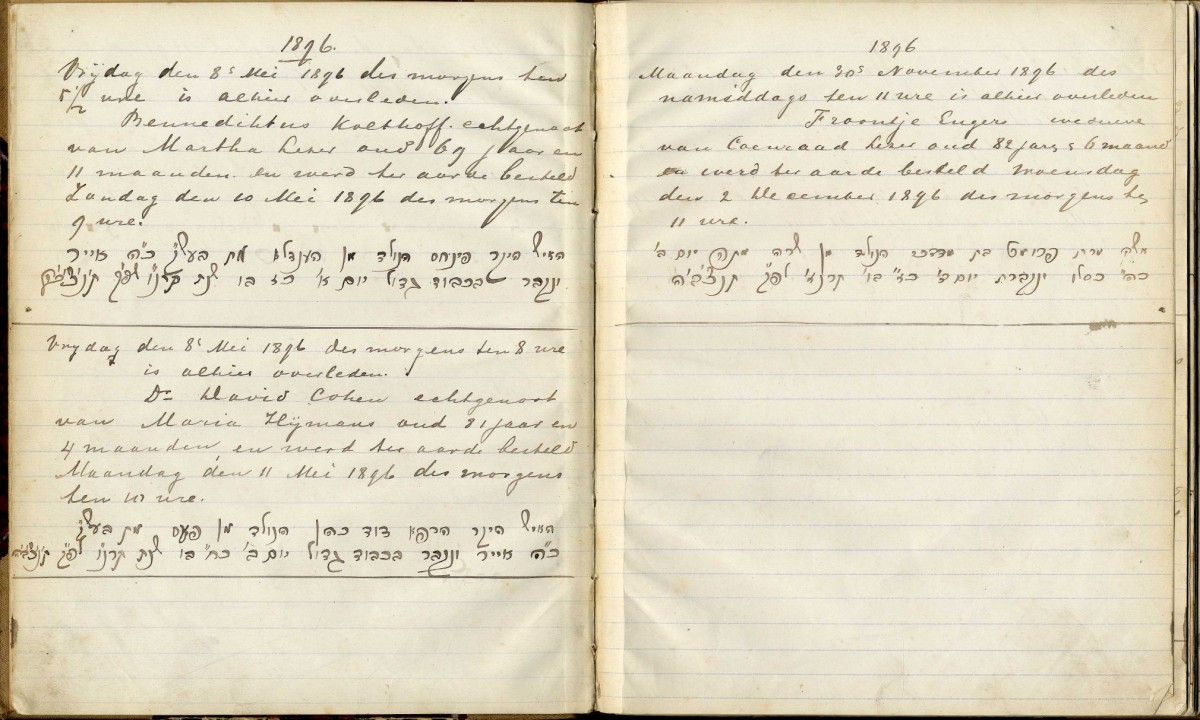 1896.
Vrijdag den 8s Mei 1896 des morgens ten
5 1/2 ure is alhier overleden.
Bennedihtus Kolthoff. echtgenoot
van Martha Leser oud 69 jaar en
11 maanden. en werd ter aarde besteld
Zondag den 10 Mei 1896 des morgens ten
9 ure.
האיש הינר פינחס הנולד מן הענדלא מת בעש״ק כ״ה אייר
ונקבר בכבוד גדול יום א׳ כז בו שנת לפ״ק
Vrydag den 8s Mei 1896 des morgens ten 8 ure
is alhier overleden.
Dr David Cohen echtgenoot
van Maria Hijmans oud 31 jaar en
4 maanden, en werd ter aarde besteld
Maandag den 11 Mei 1896 des morgens
ten 10 ure.
האיש הינר הרפא דוד כהן הנולד מן מת בעש״ק
כ״ה אייר ונקבר בכבוד גדול יום ב׳ כח״ בו שנת תרנ״ו לפ״ק
1896
Maandag den 30s November 1896 des
namiddags ten 11 ure is alhier overleden
Froontje Engers weduwe
van Coenraad Leser oud 82 jaar, 6 maand
en werd ter aarde besteld Woensdag
den 2 December 1896 des morgens ten
11 ure.
אשה מרת פרומט בת מרדכי הנולד מן שרה מתה יום ב׳
כה״ כסלו ונקברת יום ד׳ כז״ בו תרנז׳ לפ״ק תנצ׳ב׳ה׳